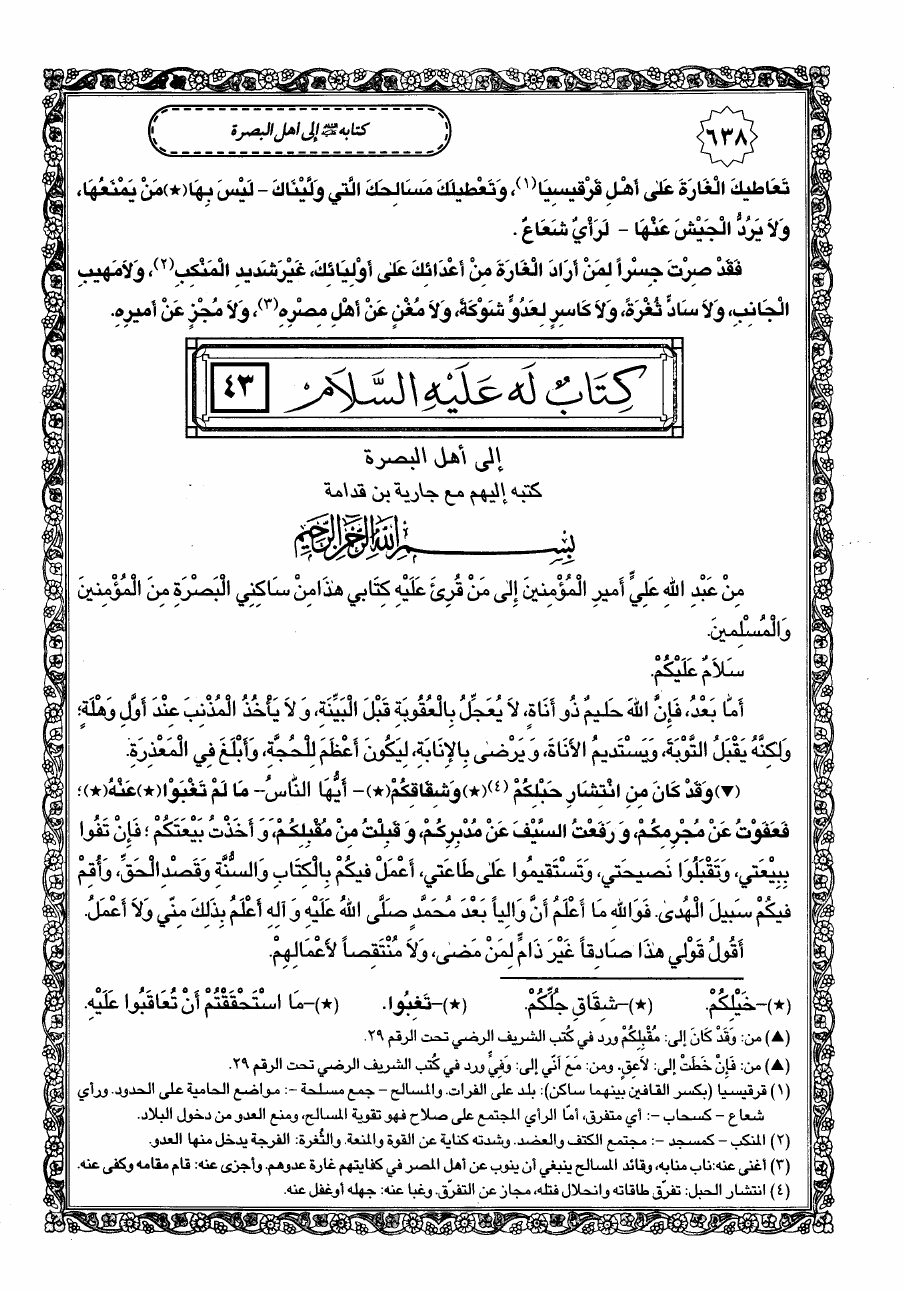 ٦٣٨
كتابه إلى أهل البصرة
تَعَاطِيكَ الْغَارَةَ عَلى أَهْلِ قَرْقِيسِيَا(١)، وَتَعْطيلَكَ مَسَالِحَكَ الَّتي وَلَّيْنَاكَ - لَيْسَ بِهَا(★)مَنْ يَمْنَعُهَا،
وَلاَ يَرُدُّ الْجَيْشَ عَنْهَا - لَرَأْيٌ شَعَاعٌ.
فَقَدْ صِرْتَ جِسْراً لِمَنْ أَرَادَ الْغَارَةَ مِنْ أَعْدَائِكَ عَلى أَوْلِيَائِكَ، غَيْرَ شَديدِ الْمَنْكِبِ(٢)، وَلاَ مَهيبِ
الْجَانِبِ، وَلاَ سَادٍّ ثُغْرَةً، وَلاَ كَاسِرٍ لِعَدُوٍّ شَوْكَةً، وَلاَ مُغْنٍ عَنْ أَهْلِ مِصْرِهِ(٣)، وَلاَ مُجْزٍ عَنْ أَميرِهِ.
كِتَابٌ لَه عَلَيْهِ السَّلَامُ ٤٣
إلى أهل البصرة
كتبه إليهم مع جارية بن قدامة
بِسْمِ اللهِ الرَّحْمنِ الرَّحِيمِ
مِنْ عَبْدِ اللهِ عَلِيٍّ أَميرِ الْمُؤْمِنينَ إِلى مَنْ قُرِئَ عَلَيْهِ كِتَابي هذَا مِنْ سَاكِنِي الْبَصْرَةِ مِنَ الْمُؤْمِنينَ
وَالْمُسْلِمينَ.
سَلاَمٌ عَلَيْكُمْ.
أَمَّا بَعْدُ، فَإِنَّ اللهَ حَليمٌ ذُو أَنَاةٍ، لاَ يُعَجِّلُ بِالْعُقُوبَةِ قَبْلَ الْبَيِّنَةِ، وَ لاَ يَأْخُذُ الْمُذْنِبَ عِنْدَ أَوَّلِ وَهْلَةٍ؛
وَلكِنَّهُ يَقْبَلُ التَّوْبَةَ، وَيَسْتَديمُ الأَنَاةَ، وَ يَرْضى بِالإِنَابَةِ، لِيَكُونَ أَعْظَمَ لِلْحُجَّةِ، وَأَبْلَغَ فِي الْمَعْذِرَةِ.
(▼)وَقَدْ كَانَ مِنِ انْتِشَارِ حَبْلِكُمْ (٤)(★)وَشِقَاقِكُمْ(★)- أَيُّهَا النَّاسُ- مَا لَمْ تَغْبَوْا(★)عَنْهُ(★)؛
فَعَفَوْتُ عَنْ مُجْرِمِكُمْ، وَ رَفَعْتُ السَّيْفَ عَنْ مُدْبِرِكُمْ، وَ قَبِلْتُ مِنْ مُقْبِلِكُمْ، وَ أَخَذْتُ بَيْعَتَكُمْ؛ فَإِنْ تَفُوا
بِبَيْعَتي، وَتَقْبَلُوا نَصيحَتي، وَتَسْتَقيمُوا عَلى طَاعَتي، أَعْمَلْ فيكُمْ بِالْكِتَابِ وَالسُّنَّةِ وَقَصْدِ الْحَقِّ، وَأُقِمْ
فيكُمْ سَبيلَ الْهُدى. فَوَاللهِ مَا أَعْلَمُ أَنَّ وَالِياً بَعْدَ مُحَمَّدٍ صَلَّى اللهُ عَلَيْهِ وَ آلِهِ أَعْلَمُ بِذلِكَ مِنّي وَلاَ أَعْمَلُ.
أَقُولُ قَوْلي هذَا صَادِقاً غَيْرَ ذَامٍّ لِمَنْ مَضى، وَلاَ مُنْتَقِصاً لأَعْمَالِهِمْ.
(★)-خَيْلِكُمْ. (★)-شِقَاقِ جُلِّكُمْ. (★)-تَغِبُوا. (★)-مَا اسْتَحْقَقْتُمْ أَنْ تُعَاقَبُوا عَلَيْهِ.
(▲) من: وَقَدْ كَانَ إلى: مُقْبِلِكُمْ ورد في كُتب الشريف الرضي تحت الرقم ٢٩.
(▲) من: فَإِنْ خَطَتْ إلى: لاَعِقٍ. ومن: مَعَ أَنّي إلى: وَفِيٍّ ورد في كُتب الشريف الرضي تحت الرقم ٢٩.
(١) قرقيسيا (بكسر القافين بينهما ساكن): بلد على الفرات. والمسالح - جمع مسلحة -: مواضع الحامية على الحدود. ورأي
شعاع - كسحاب -: أي متفرق، أمّا الرأي المجتمع على صلاح فهو تقوية المسالح، ومنع العدو من دخول البلاد.
(٢) المنكب - كمسجد -: مجتمع الكتف والعضد. وشدته كناية عن القوة والمنعة. والثُّغرة: الفرجة يدخل منها العدو.
(٣) أغنى عنه:ناب منابه، وقائد المسالح ينبغي أن ينوب عن أهل المصر في كفايتهم غارة عدوهم. وأجزى عنه: قام مقامه وكفى عنه.
(٤) انتشار الحبل: تفرّق طاقاته وانحلال فتله، مجاز عن التفرّق. وغبا عنه: جهله أو غفل عنه.